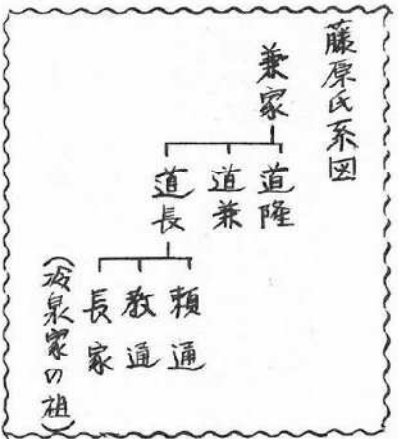 藤原氏系図
兼家
道隆
道兼
道長
頼通
教通
長家
(冷泉家の祖)